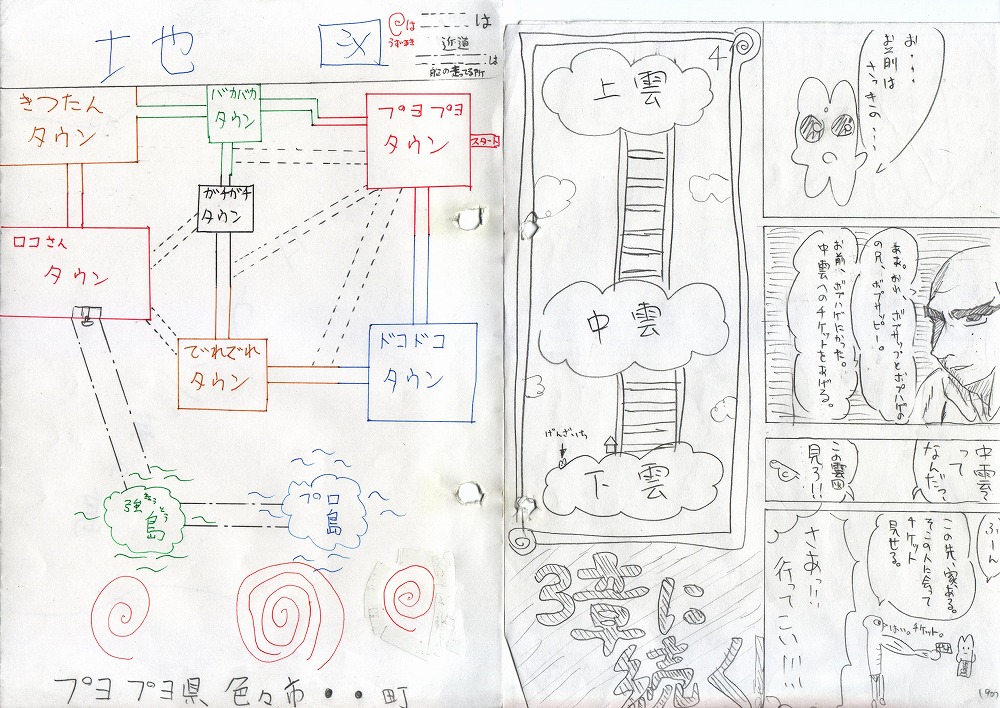 土也 図
は
うずまき
は
近道
は
船の走ってる所
きつたん
タウン
バカバカ
タウン
プヨプヨ
タウン
スタート
ガチガチ
タウン
ロコさん
タウン
でれでれ
タウン
ドコドコ
タウン
きょうとう
強島
プロ島
プヨプヨ県 色々市・・町
4
上雲
中雲
3
げんざいち
下雲
3章に
続く
お・・・
お前は
さっきの・・・
ああ。かれ、ボブサップとボブハゲの
の兄、ボブサッピー。
お前、ボブハゲにかった。
中雲へのチケットをあげる。
中雲
って
なんだっ
この雲図
見ろ!!
ふーん
この先、家ある。
そこの人に会って
チケット
見せる。
はい。チケット。
さあっ!!
行ってこい!!!